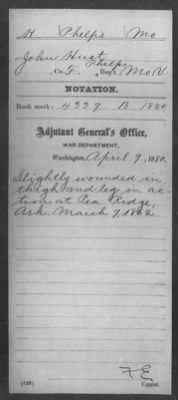 H Phelps Mo
John Hurt
Phelps
Co. F, Reg't Mo V
NOTATION.
Book mark: 4339 B 1880
Adjutant General's Office,
WAR DEPARTMENT,
Washington, April 9, 1880.
Slightly wounded in
thigh and leg in ac
tion at Pea Ridge,
Ark. March 7, 1862.
F E
Copyist.